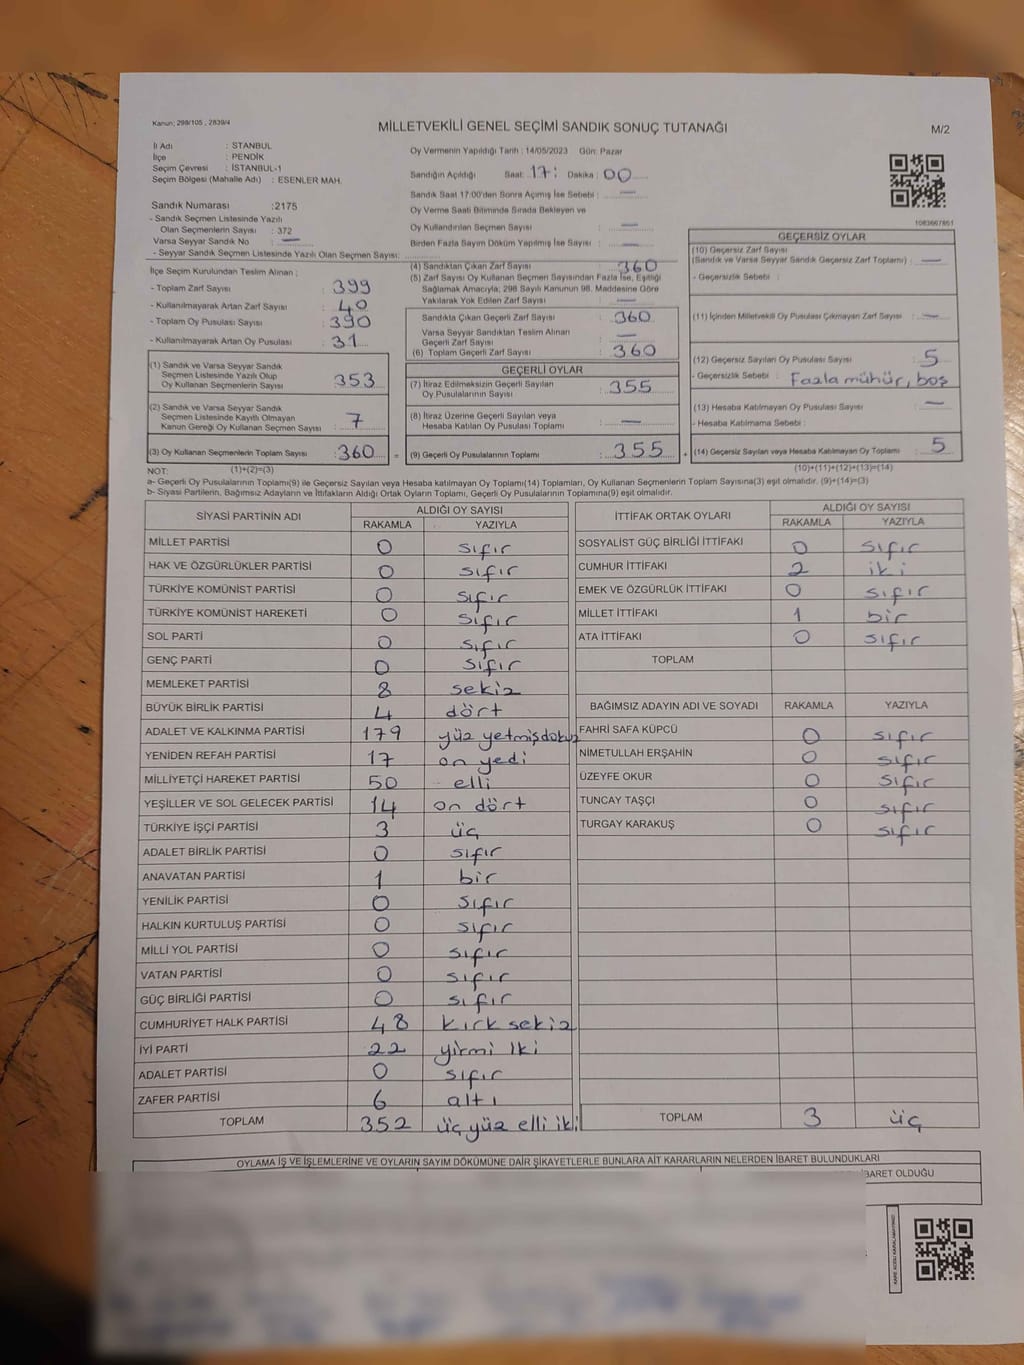 Kanun: 298/105 , 2839/4
MİLLETVEKİLİ GENEL SEÇİMİ SANDIK SONUÇ TUTANAĞI
M/2
İl Adı : STANBUL
İlçe : PENDİK
Seçim Çevresi : İSTANBUL-1
Seçim Bölgesi (Mahalle Adı) : ESENLER MAH.
Sandık Numarası :2175
- Sandık Seçmen Listesinde Yazılı
Olan Seçmenlerin Sayısı : 372
Varsa Seyyar Sandık No : —
- Seyyar Sandık Seçmen Listesinde Yazılı Olan Seçmen Sayısı:
Oy Vermenin Yapıldığı Tarih : 14/05/2023 Gün: Pazar
Sandığın Açıldığı Saat: 17: Dakika: 00
Sandık Saat 17:00'den Sonra Açımış İse Sebebi : —
Oy Verme Saati Bitiminde Sırada Bekleyen ve
Oy Kullandırılan Seçmen Sayısı : —
Birden Fazla Sayım Döküm Yapılmış İse Sayısı : —
1083667851
İlçe Seçim Kurulundan Teslim Alınan ;
- Toplam Zarf Sayısı : 399
- Kullanılmayarak Artan Zarf Sayısı : 40
- Toplam Oy Pusulası Sayısı : 390
- Kullanılmayarak Artan Oy Pusulası : 31
(1) Sandık ve Varsa Seyyar Sandık
Seçmen Listesinde Yazılı Olup
Oy Kullanan Seçmenlerin Sayısı : 353
(2) Sandık ve Varsa Seyyar Sandık
Seçmen Listesinde Kayıtlı Olmayan
Kanun Gereği Oy Kullanan Seçmen Sayısı : 7
(3) Oy Kullanan Seçmenlerin Toplam Sayısı : 360 =
(4) Sandıktan Çıkan Zarf Sayısı : 360
(5) Zarf Sayısı Oy Kullanan Seçmen Sayısından Fazla İse, Eşitliği
Sağlamak Amacıyla; 298 Sayılı Kanunun 98. Maddesine Göre
Yakılarak Yok Edilen Zarf Sayısı : —
Sandıkta Çıkan Geçerli Zarf Sayısı : 360
Varsa Seyyar Sandıktan Teslim Alınan
Geçerli Zarf Sayısı : —
(6) Toplam Geçerli Zarf Sayısı : 360
GEÇERLİ OYLAR
(7) İtiraz Edilmeksizin Geçerli Sayılan
Oy Pusulalarının Sayısı : 355
(8) İtiraz Üzerine Geçerli Sayılan veya
Hesaba Katılan Oy Pusulası Toplamı : —
(9) Geçerli Oy Pusulalarının Toplamı : 355 +
GEÇERSİZ OYLAR
(10) Geçersiz Zarf Sayısı
(Sandık ve Varsa Seyyar Sandık Geçersiz Zarf Toplamı) : —
- Geçersizlik Sebebi :
(11) İçinden Milletvekili Oy Pusulası Çıkmayan Zarf Sayısı : —
(12) Geçersiz Sayılan Oy Pusulası Sayısı : 5
- Geçersizlik Sebebi : Fazla mühür, boş
(13) Hesaba Katılmayan Oy Pusulası Sayısı : —
- Hesaba Katılmama Sebebi :
(14) Geçersiz Sayılan veya Hesaba Katılmayan Oy Toplamı : 5
NOT: (1)+(2)=(3) (10)+(11)+(12)+(13)=(14)
a- Geçerli Oy Pusulalarının Toplamı(9) ile Geçersiz Sayılan veya Hesaba katılmayan Oy Toplamı(14) Toplamları, Oy Kullanan Seçmenlerin Toplam Sayısına(3) eşit olmalıdır. (9)+(14)=(3)
b- Siyasi Partilerin, Bağımsız Adayların ve İttifakların Aldığı Ortak Oyların Toplamı, Geçerli Oy Pusulalarının Toplamına(9) eşit olmalıdır.
SİYASİ PARTİNİN ADI ALDIĞI OY SAYISI
RAKAMLA YAZIYLA
MİLLET PARTİSİ 0 sıfır
HAK VE ÖZGÜRLÜKLER PARTİSİ 0 sıfır
TÜRKİYE KOMÜNİST PARTİSİ 0 sıfır
TÜRKİYE KOMÜNİST HAREKETİ 0 sıfır
SOL PARTİ 0 sıfır
GENÇ PARTİ 0 sıfır
MEMLEKET PARTİSİ 8 sekiz
BÜYÜK BİRLİK PARTİSİ 4 dört
ADALET VE KALKINMA PARTİSİ 179 yüz yetmişdokuz
YENİDEN REFAH PARTİSİ 17 on yedi
MİLLİYETÇİ HAREKET PARTİSİ 50 elli
YEŞİLLER VE SOL GELECEK PARTİSİ 14 on dört
TÜRKİYE İŞÇİ PARTİSİ 3 üç
ADALET BİRLİK PARTİSİ 0 sıfır
ANAVATAN PARTİSİ 1 bir
YENİLİK PARTİSİ 0 sıfır
HALKIN KURTULUŞ PARTİSİ 0 sıfır
MİLLİ YOL PARTİSİ 0 sıfır
VATAN PARTİSİ 0 sıfır
GÜÇ BİRLİĞİ PARTİSİ 0 sıfır
CUMHURİYET HALK PARTİSİ 48 kırk sekiz
İYİ PARTİ 22 yirmi iki
ADALET PARTİSİ 0 sıfır
ZAFER PARTİSİ 6 altı
TOPLAM 352 üç yüz elli iki
İTTİFAK ORTAK OYLARI ALDIĞI OY SAYISI
RAKAMLA YAZIYLA
SOSYALİST GÜÇ BİRLİĞİ İTTİFAKI 0 sıfır
CUMHUR İTTİFAKI 2 iki
EMEK VE ÖZGÜRLÜK İTTİFAKI 0 sıfır
MİLLET İTTİFAKI 1 bir
ATA İTTİFAKI 0 sıfır
TOPLAM
BAĞIMSIZ ADAYIN ADI VE SOYADI RAKAMLA YAZIYLA
FAHRİ SAFA KÜPCÜ 0 sıfır
NİMETULLAH ERŞAHİN 0 sıfır
ÜZEYFE OKUR 0 sıfır
TUNCAY TAŞÇI 0 sıfır
TURGAY KARAKUŞ 0 sıfır
TOPLAM 3 üç
OYLAMA İŞ VE İŞLEMLERİNE VE OYLARIN SAYIM DÖKÜMÜNE DAİR ŞİKAYETLERLE BUNLARA AİT KARARLARIN NELERDEN İBARET BULUNDUKLARI
İBARET OLDUĞU